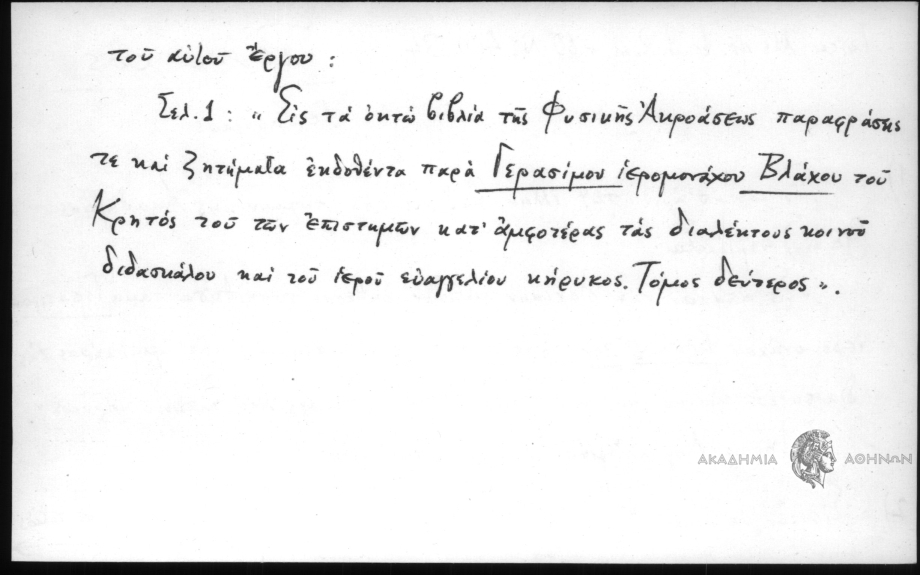 τοῦ αὐτοῦ ἔργου :
Σελ. 1 : " Εἰς τά ὀκτώ βιβλία τῆς Φυσικῆς Ἀκροάσεως παραφράσεις
τε καί ζητήματα ἐκδοθέντα παρά Γερασίμου ἱερομονάχου Βλάχου τοῦ
Κρητός τοῦ τῶν ἐπιστημῶν κατ' ἀμφοτέρας τάς διαλέκτους κοινοῦ
διδασκάλου καί τοῦ ἱεροῦ εὐαγγελίου κήρυκος. Τόμος δεύτερος ".
ΑΚΑΔΗΜΙΑ ΑΘΗΝΩΝ